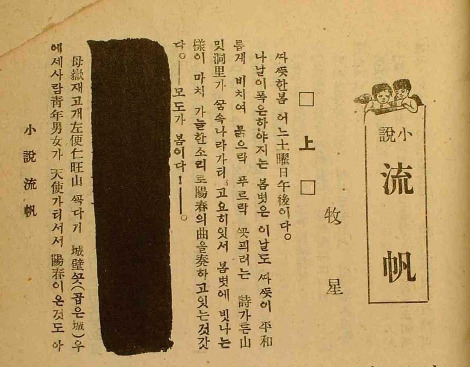 小說
流帆
牧星
□ 上 □
ᄯᅡᄯᅳᆺ한봄 어느 土曜日午後이다。
나날이폭은하야지는 봄볏은 이날도 ᄯᅡᄯᅳᆺ이 平和
릅게 비치여 붉으락 푸르락 ᄭᅩᆺ픠려는 詩가튼山
밋洞里가 ᄭᅮᆷ속나라가티 고요히잇서 봄볏에 빗나는
樣이 마치 가늘한소리로陽春의曲을奏하고잇는것갓
다。—— 모도가 봄이다!——。
母嶽재고개左便仁旺山 城壁ᄭᅳᆺ(곱은城)우
에세사람靑年男女가 天使가티서서 陽春이온것도 아
小說流帆